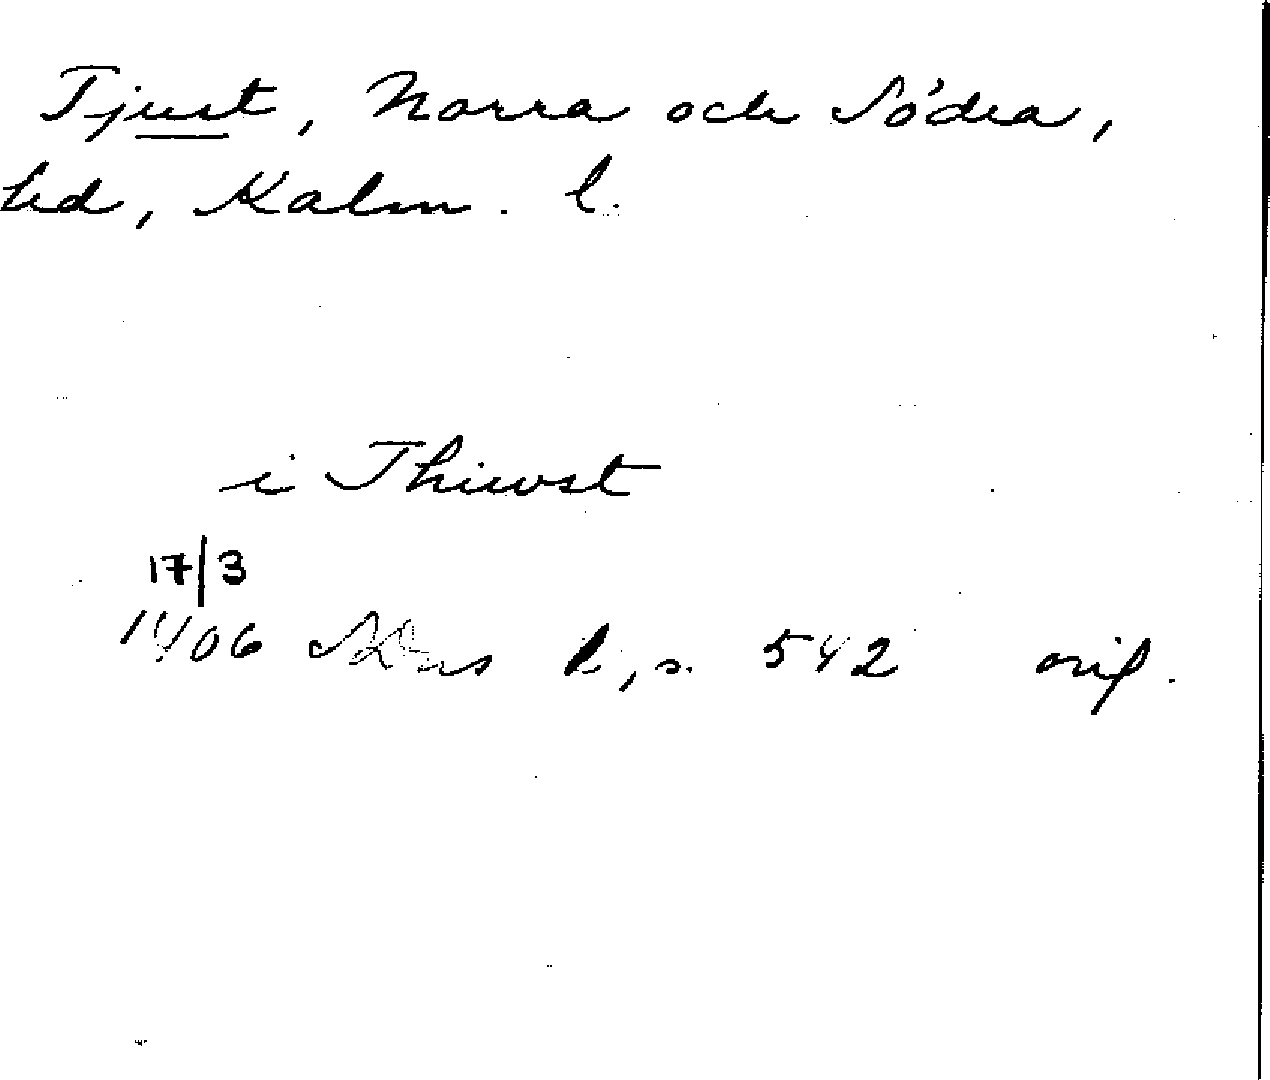 Tjust, Norra och Södra,
hd, Kalm. l.
i Thiwst
17/3
1406 SDns 1, s. 542 orig.